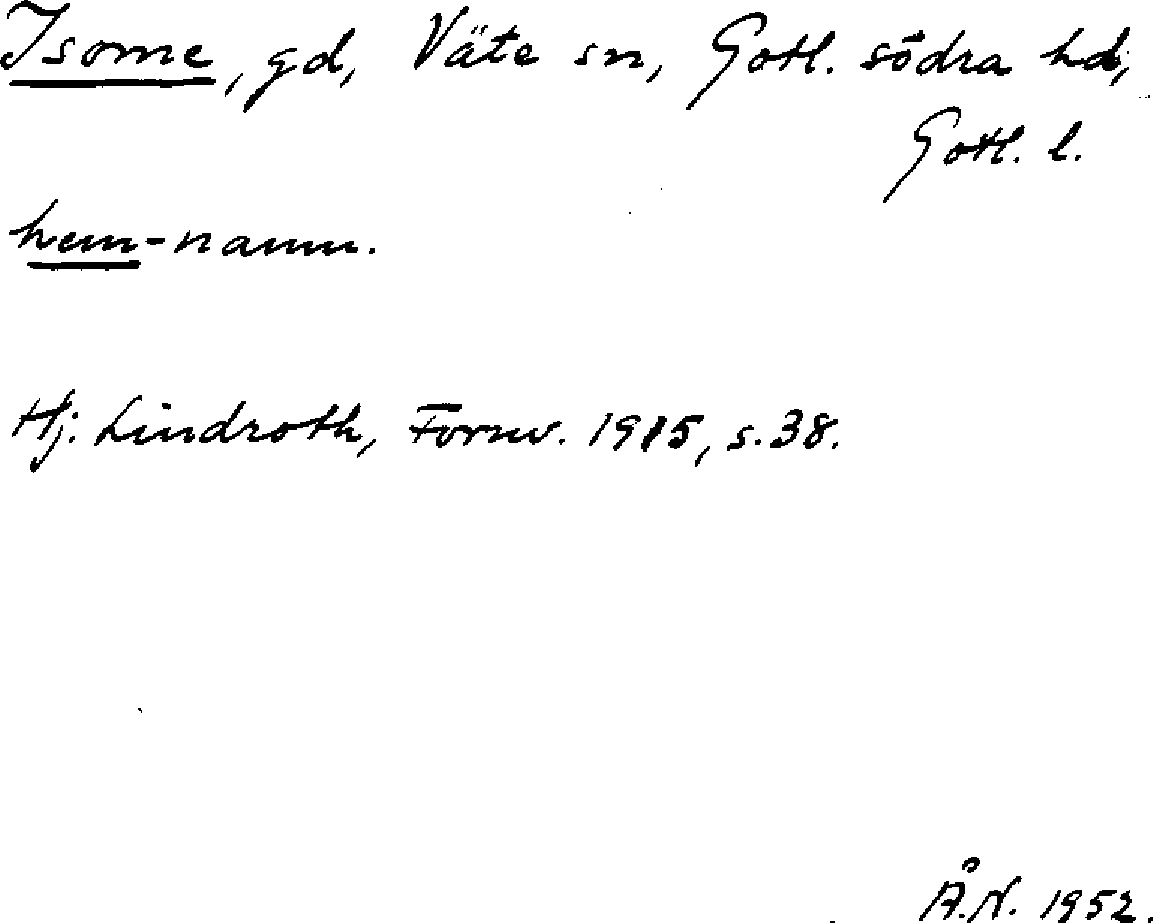 Isome, gd, Väte sn, Gotl. södra hd,
Gotl. l.
hem-namn.
Hj. Lindroth, Fornv. 1915, s. 38.
Å.N. 1952.